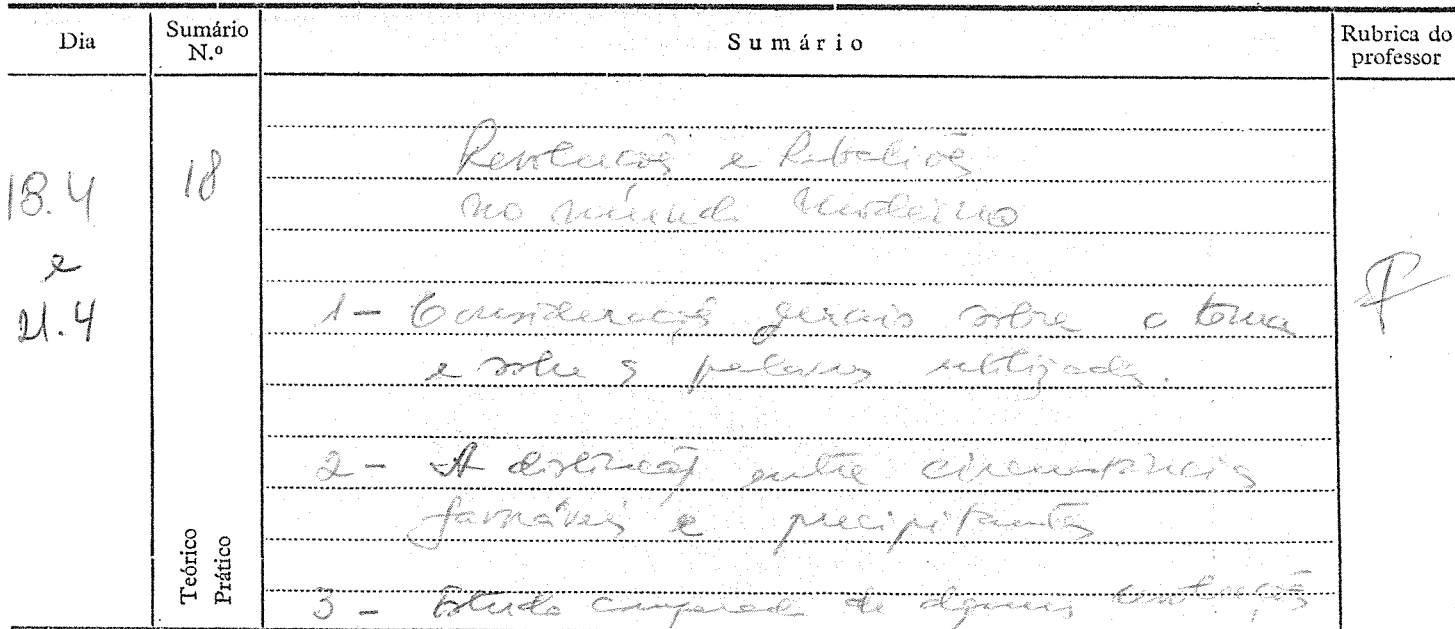 Dia
Sumário N.º
Sumário
Rubrica do professor
18.4
e
21.4
18
Teórico
Prático
Revoluções e Rebeliões
no mundo moderno
1 - Considerações gerais sobre o tema
e sobre as palavras utilizadas.
2 - A distinção entre circunstâncias
favoráveis e precipitantes
3 - Estudo comparado de algumas revoluções